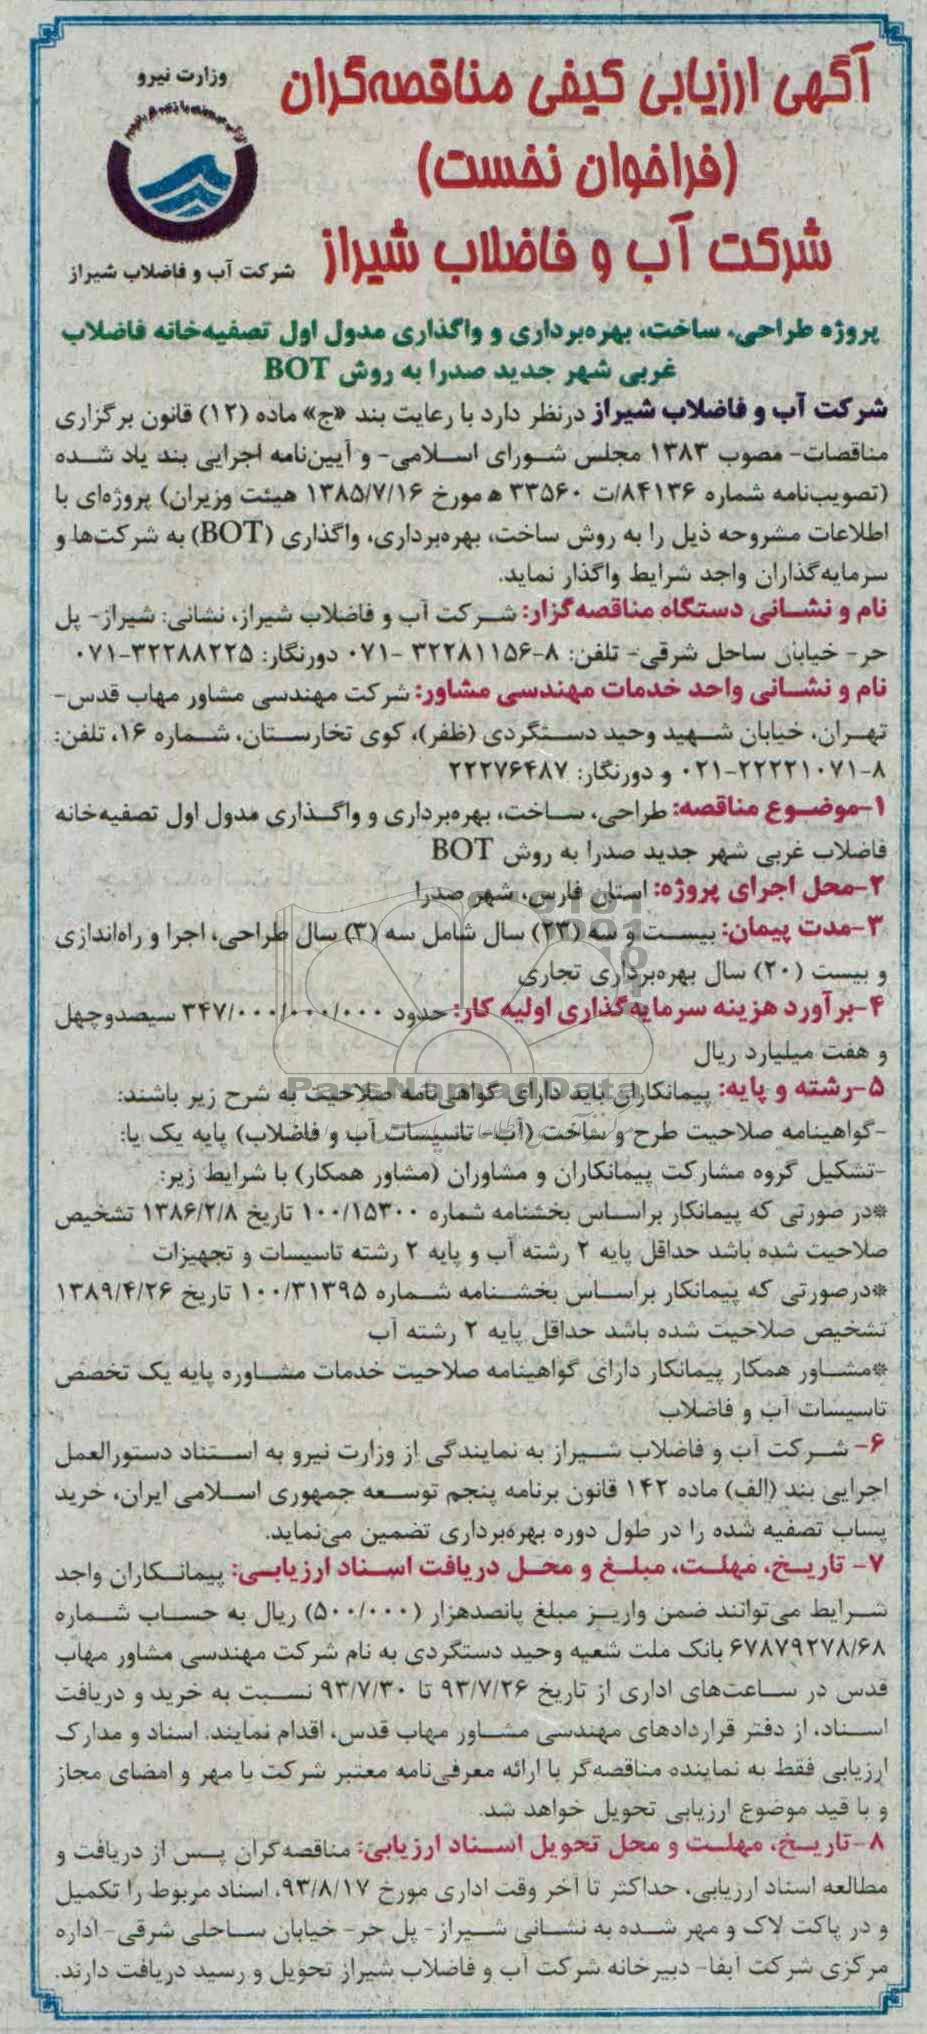 وزارت نیرو
شرکت آب و فاضلاب شیراز
آگهی ارزیابی کیفی مناقصه‌گران
(فراخوان نخست)
شرکت آب و فاضلاب شیراز
پروژه طراحی، ساخت، بهره‌برداری و واگذاری مدول اول تصفیه‌خانه فاضلاب
غربی شهر جدید صدرا به روش BOT
شرکت آب و فاضلاب شیراز درنظر دارد با رعایت بند «ج» ماده (۱۲) قانون برگزاری
مناقصات- مصوب ۱۳۸۳ مجلس شورای اسلامی- و آیین‌نامه اجرایی بند یاد شده
(تصویب‌نامه شماره ۸۴۱۳۶/ت ۳۳۵۶۰ ه مورخ ۱۳۸۵/۷/۱۶ هیئت وزیران) پروژه‌ای با
اطلاعات مشروحه ذیل را به روش ساخت، بهره‌برداری، واگذاری (BOT) به شرکت‌ها و
سرمایه‌گذاران واجد شرایط واگذار نماید.
نام و نشانی دستگاه مناقصه‌گزار: شرکت آب و فاضلاب شیراز، نشانی: شیراز- پل
حر- خیابان ساحل شرقی- تلفن: ۸-۳۲۲۸۱۱۵۶ -۰۷۱ دورنگار: ۳۲۲۸۸۲۲۵-۰۷۱
نام و نشانی واحد خدمات مهندسی مشاور: شرکت مهندسی مشاور مهاب قدس-
تهران، خیابان شهید وحید دستگردی (ظفر)، کوی تخارستان، شماره ۱۶، تلفن:
۸-۲۲۲۲۱۰۷۱-۰۲۱ و دورنگار: ۲۲۲۷۶۴۸۷
۱-موضوع مناقصه: طراحی، ساخت، بهره‌برداری و واگذاری مدول اول تصفیه‌خانه
فاضلاب غربی شهر جدید صدرا به روش BOT
۲-محل اجرای پروژه: استان فارس، شهر صدرا
۳-مدت پیمان: بیست و سه (۲۳) سال شامل سه (۳) سال طراحی، اجرا و راه‌اندازی
و بیست (۲۰) سال بهره‌برداری تجاری
۴-برآورد هزینه سرمایه‌گذاری اولیه کار: حدود ۳۴۷/۰۰۰/۰۰۰/۰۰۰ سیصدوچهل
و هفت میلیارد ریال
۵-رشته و پایه: پیمانکاران باید دارای گواهی‌نامه صلاحیت به شرح زیر باشند:
ParsNamadData
-گواهینامه صلاحیت طرح و ساخت (آب- تاسیسات آب و فاضلاب) پایه یک یا:
-تشکیل گروه مشارکت پیمانکاران و مشاوران (مشاور همکار) با شرایط زیر:
*در صورتی که پیمانکار براساس بخشنامه شماره ۱۰۰/۱۵۳۰۰ تاریخ ۱۳۸۶/۲/۸ تشخیص
صلاحیت شده باشد حداقل پایه ۲ رشته آب و پایه ۲ رشته تاسیسات و تجهیزات
*درصورتی که پیمانکار براساس بخشنامه شماره ۱۰۰/۳۱۳۹۵ تاریخ ۱۳۸۹/۴/۲۶
تشخیص صلاحیت شده باشد حداقل پایه ۲ رشته آب
*مشاور همکار پیمانکار دارای گواهینامه صلاحیت خدمات مشاوره پایه یک تخصص
تاسیسات آب و فاضلاب
۶- شرکت آب و فاضلاب شیراز به نمایندگی از وزارت نیرو به استناد دستورالعمل
اجرایی بند (الف) ماده ۱۴۲ قانون برنامه پنجم توسعه جمهوری اسلامی ایران، خرید
پساب تصفیه شده را در طول دوره بهره‌برداری تضمین می‌نماید.
۷- تاریخ، مهلت، مبلغ و محل دریافت اسناد ارزیابی: پیمانکاران واجد
شرایط می‌توانند ضمن واریز مبلغ پانصدهزار (۵۰۰/۰۰۰) ریال به حساب شماره
۶۷۸۷۹۲۷۸/۶۸ بانک ملت شعبه وحید دستگردی به نام شرکت مهندسی مشاور مهاب
قدس در ساعت‌های اداری از تاریخ ۹۳/۷/۲۶ تا ۹۳/۷/۳۰ نسبت به خرید و دریافت
اسناد، از دفتر قراردادهای مهندسی مشاور مهاب قدس، اقدام نمایند. اسناد و مدارک
ارزیابی فقط به نماینده مناقصه‌گر با ارائه معرفی‌نامه معتبر شرکت با مهر و امضای مجاز
و با قید موضوع ارزیابی تحویل خواهد شد.
۸-تاریخ، مهلت و محل تحویل اسناد ارزیابی: مناقصه‌گران پس از دریافت و
مطالعه اسناد ارزیابی، حداکثر تا آخر وقت اداری مورخ ۹۳/۸/۱۷، اسناد مربوط را تکمیل
و در پاکت لاک و مهر شده به نشانی شیراز- پل حر- خیابان ساحلی شرقی- اداره
مرکزی شرکت ابفا- دبیرخانه شرکت آب و فاضلاب شیراز تحویل و رسید دریافت دارند.